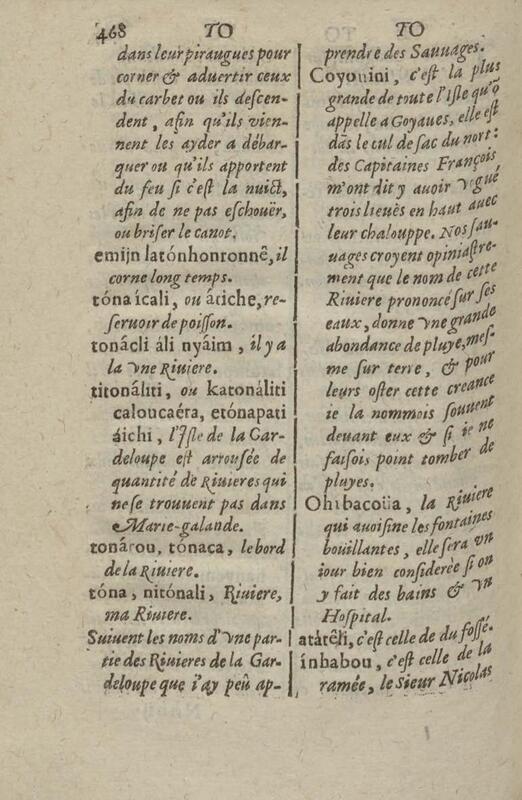 468 TO TO
dans leur piraugues pour
corner & aduertir ceux
du carbet ou ils descen-
dent, afin qu'ils vien-
nent les ayder a débar-
quer ou qu'ils apportent
du feu si c'est la nuict,
afin de ne pas eschouër,
ou briser le canot.
emijn latónhonronnê, il
corne long temps.
tóna ícali, ou átiche, re-
seruoir de poisson.
tonácli áli nyáim, il y a
la vne Riuiere.
titonáliti, ou katonáliti
caloucaéra, etónapati
áichi, l'Isle de la Gar-
deloupe est arrousée de
quantité de Riuieres qui
ne se trouuent pas dans
Marie-galande.
tonárou, tónaca, le bord
de la Riuiere.
tóna, nitónali, Riuiere,
ma Riuiere.
Suiuent les noms d'vne par-
tie des Riuieres de la Gar-
deloupe que i'ay peû ap-
prendre des Sauuages.
Coyouini, c'est la plus
grande de toute l'Isle qu'õ
appelle a Goyaues, elle est
dãs le cul de sac du nort:
des Capitaines François
m'ont dit y auoir vogué
trois lieuës en haut auec
leur chalouppe. Nos sau-
uages croyent opiniastre-
ment que le nom de cette
Riuiere prononcé sur ses
eaux, donne vne grande
abondance de pluye, mes-
me sur terre, & pour
leurs oster cette creance
ie la nommois souuent
deuant eux & si ie ne
faisois point tomber de
pluyes.
Ohibacoüa, la Riuiere
qui auoisine les fontaines
boüillantes, elle sera vn
iour bien considerèe si on
y fait des bains & vn
Hospital.
atátêli, c'est celle de du fossé.
ínhabou, c'est celle de la
ramée, le Sieur Nicolas